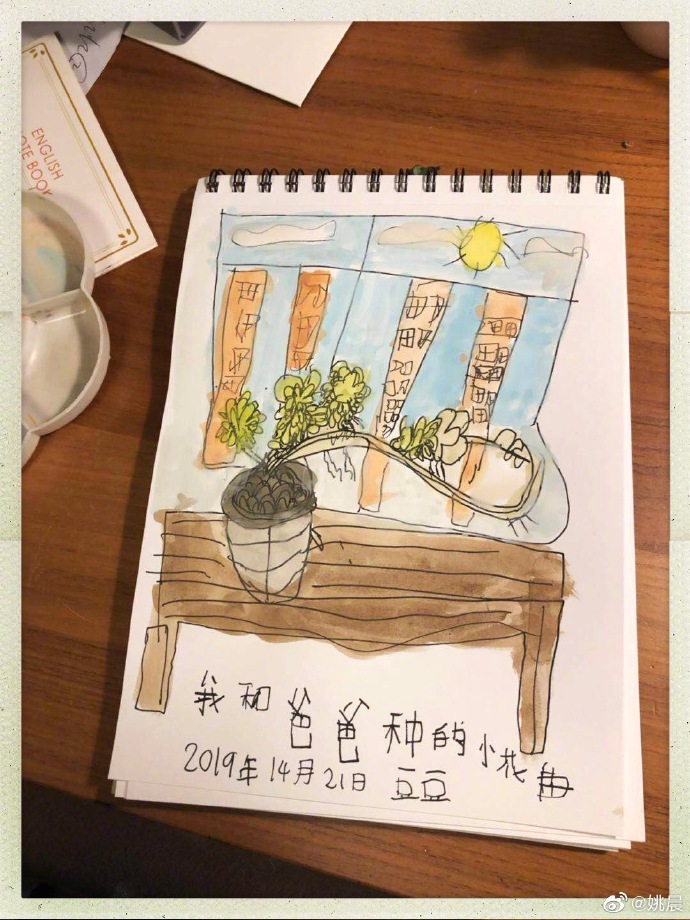 ENGLISH
OTE BOOK
我和爸爸种的小花
2019年14月21日 豆豆
@姚晨